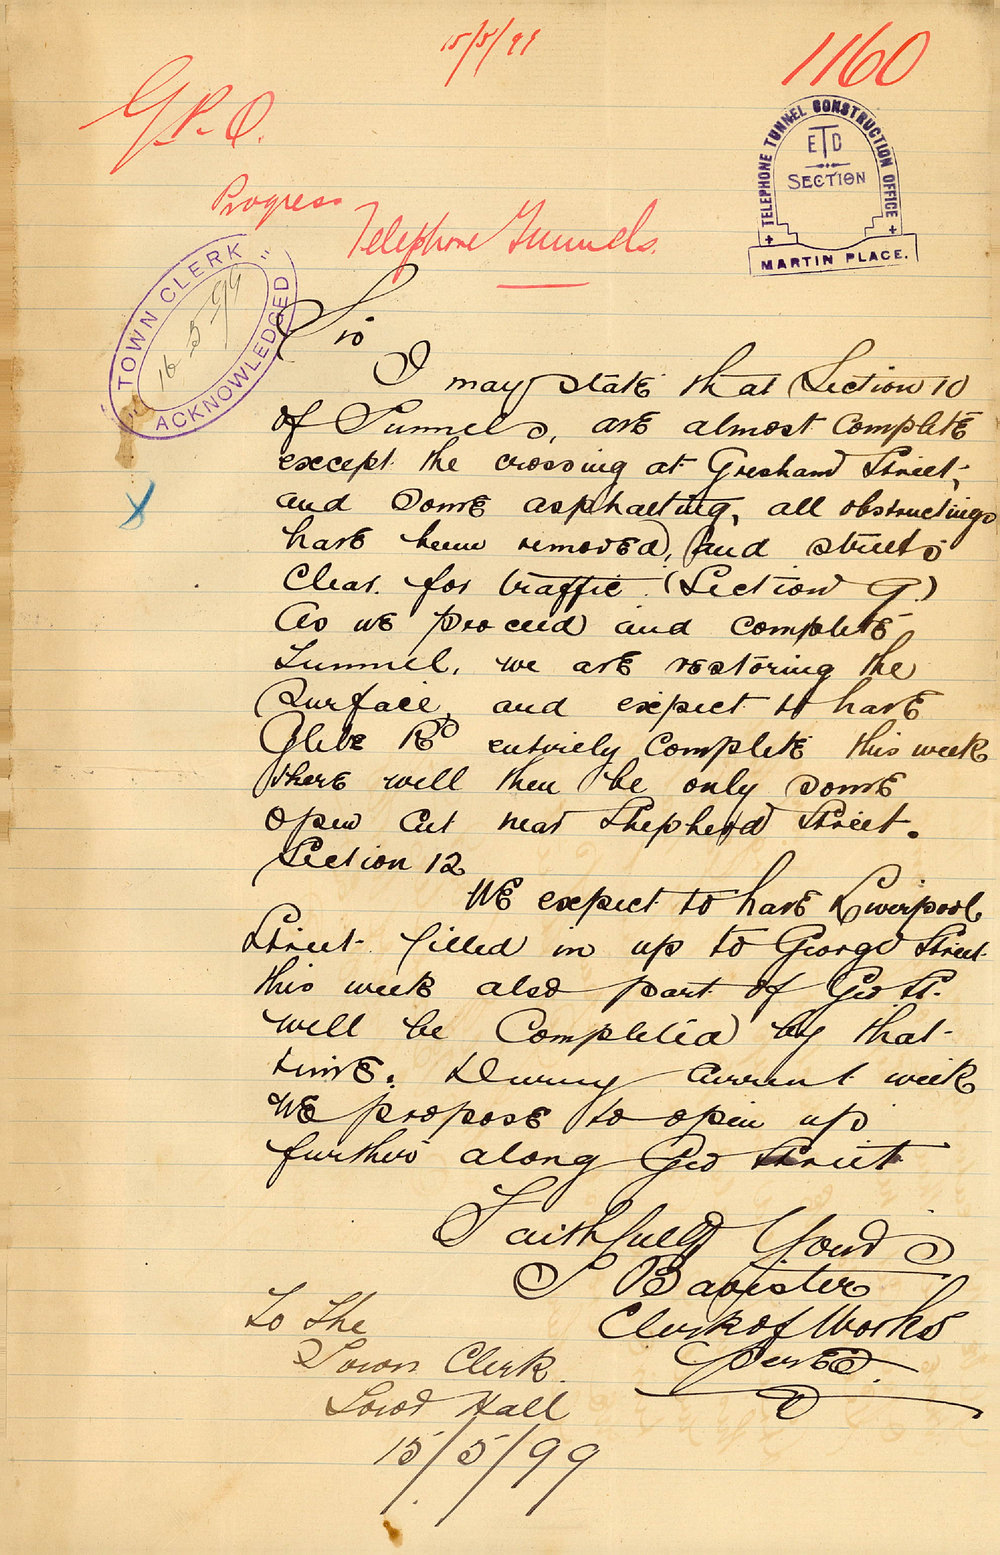 15/5/99
1160
G.P.O.
Progress
Telephone Tunnels.
TELEPHONE TUNNEL CONSTRUCTION OFFICE
ETD
SECTION
MARTIN PLACE.
"TOWN CLERK"
16-5-99
ACKNOWLEDGED
Sir
I may state that Section 10
of Tunnels, are almost complete
except the crossing at Gresham Street,
and some asphalting, all obstructings
have been removed, and streets
clear for traffic. (Section 9.)
As we proceed and complete
Tunnel, we are restoring the
surface, and expect to have
Glebe Rd entirely complete this week
there will then be only some
open cut near Shepherd Street.
Section 12
We expect to have Liverpool
Street filled in up to George Street
this week also part of Geo St.
will be Completed by that
time. During current week
we propose to open up
further along Geo Street
Faithfully Yours
J Banister
Clerk of Works
per ED.
To The
Town Clerk.
Town Hall
15/5/99